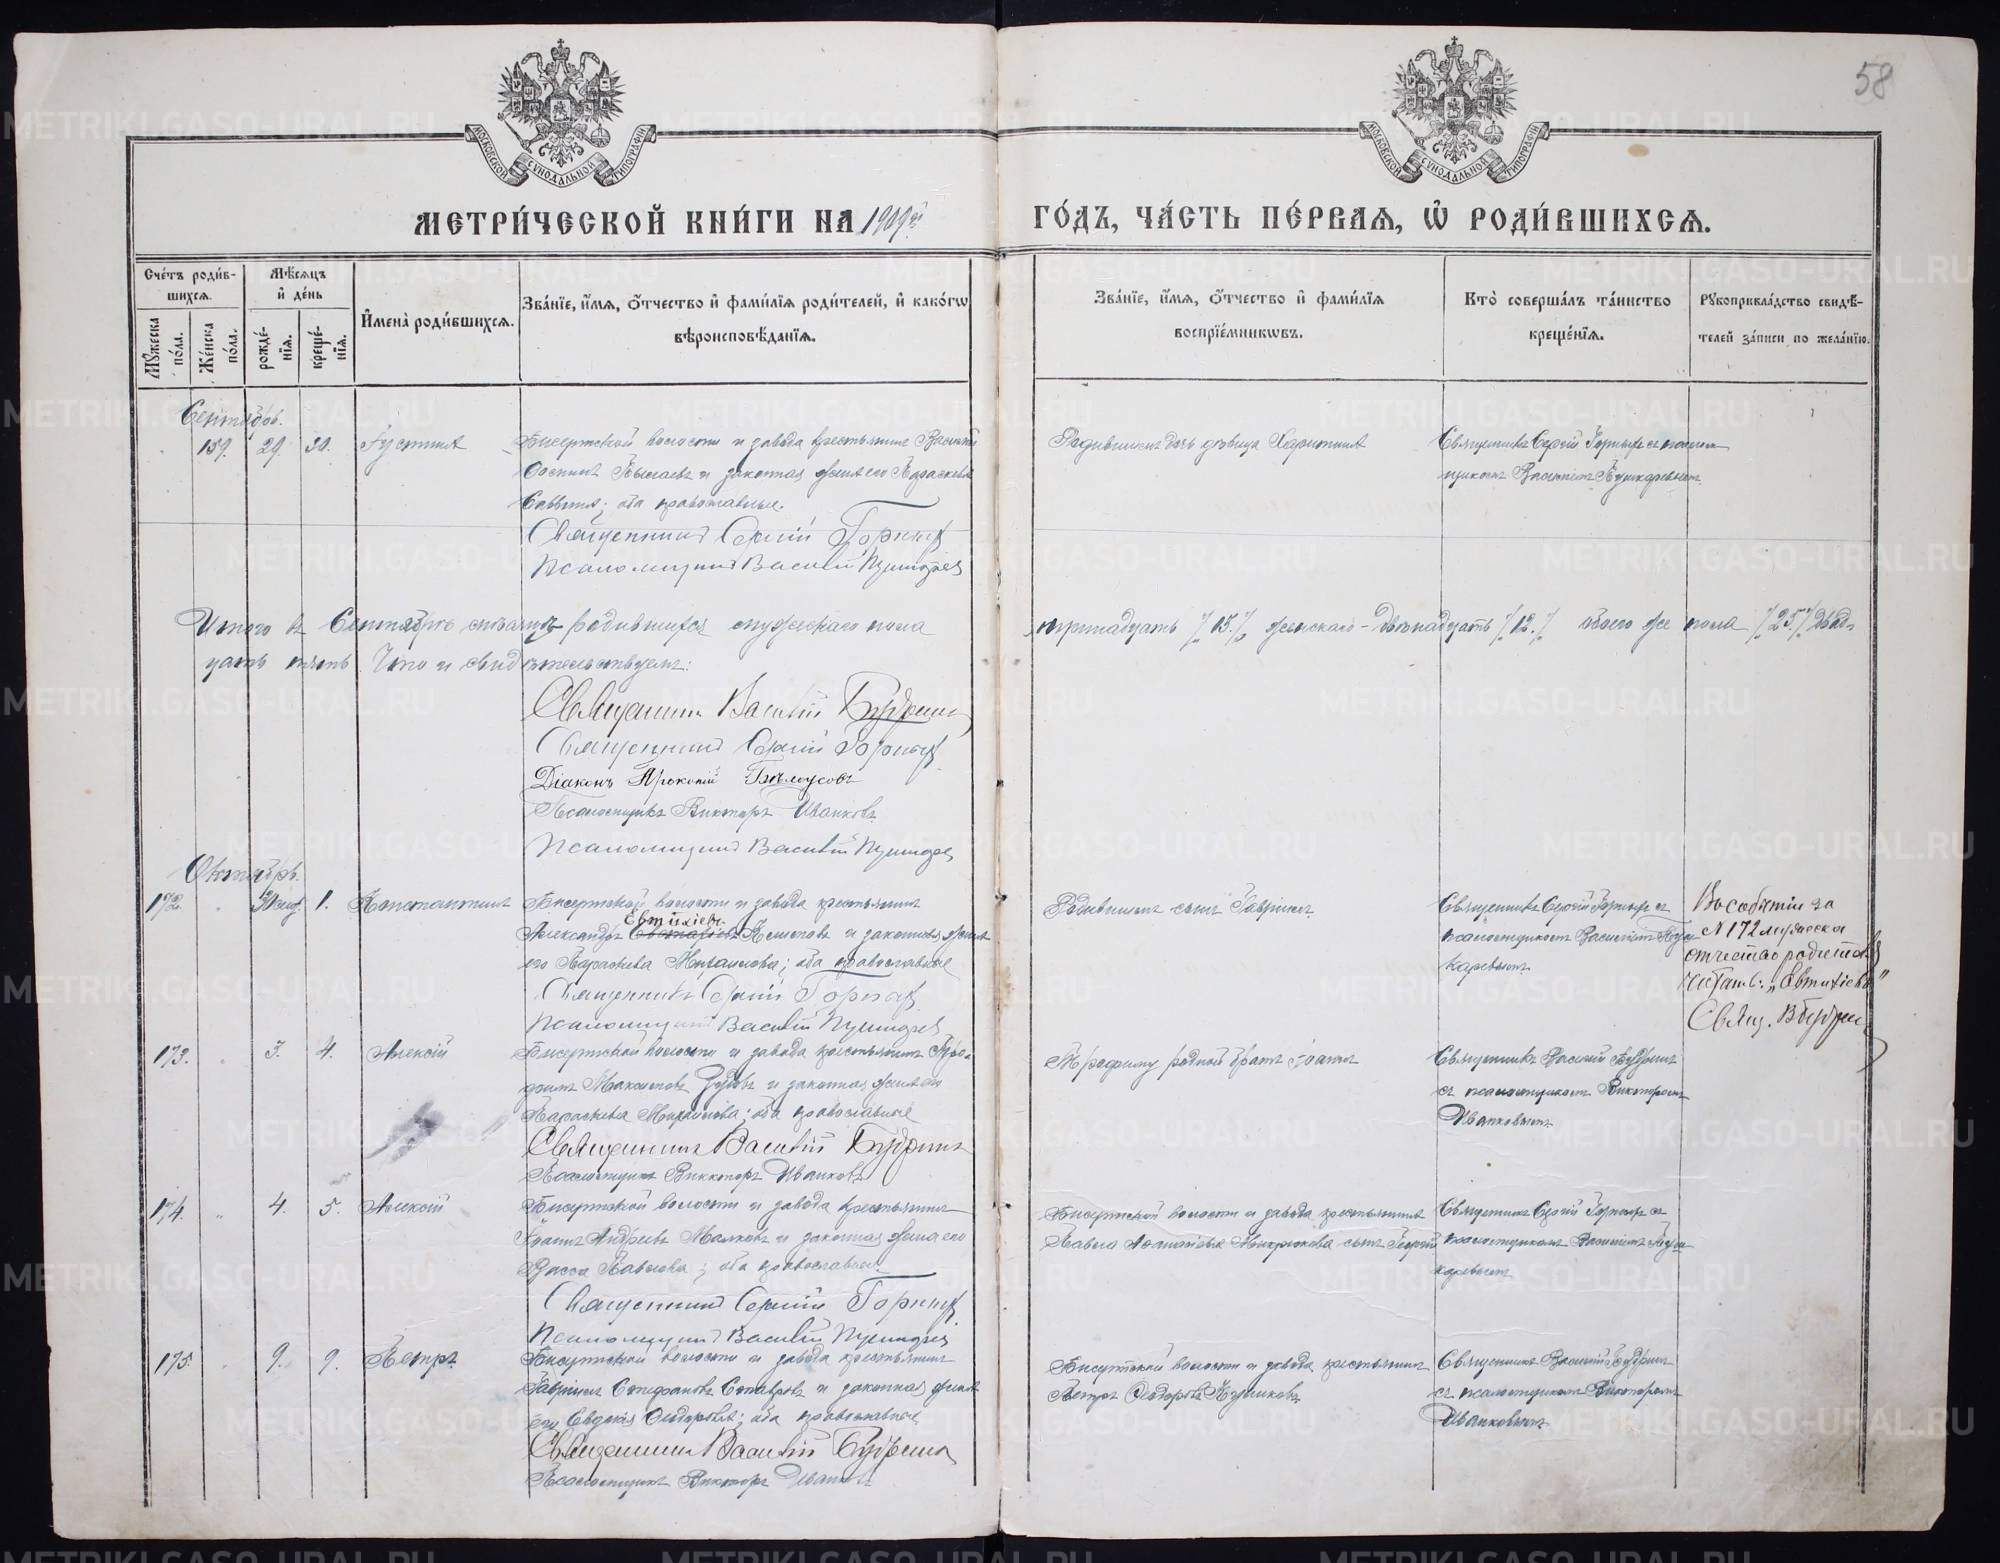 58
МОСКОВСКОЙ СѴНОДАЛЬНОЙ ТИПОГРАФІИ
МОСКОВСКОЙ СѴНОДАЛЬНОЙ ТИПОГРАФІИ
МЕТРИ́ЧЕСКОЙ КНИ́ГИ НА 1909й
ГО́ДЪ, ЧА́СТЬ ПЕ́РВАЯ, Ѡ РОДИ́ВШИХСЯ.
Сче́тъ роди́в-
шихся.
Мꙋжеска по́ла.
Же́нска по́ла.
Мѣ́сяцъ
и де́нь
рожде́-
нїя.
креще́-
нїя.
Имена̀ роди́вшихся.
Зва́нїе, и́мя, ѻ́тчество и фами́лїя роди́телей, и како́гѡ
вѣроисповѣ́данїя.
Зва́нїе, и́мя, ѻ́тчество и фами́лїя
воспрїе́мникѡвъ.
Кто̀ соверша́лъ та́инство
креще́нїя.
Рꙋкоприкла́дство свидѣ́-
телей за́писи по жела́нїю.
Сентябрь.
159. 29. 30. Іустина
Бисертской волости и завода крестьянинъ Василій
и законная жена его Параскева
Саввина; оба православные.
Священникъ Сергій Горныхъ
Псаломщикъ Василій Пушкарев
дочь девица Харитина
Священникъ Сергій Горныхъ съ псалом
щикомъ Василіемъ Пушкаревымъ.
Итого въ Сентябрѣ мѣсяцѣ родившихся мужескаго пола
тринадцать /13./, женскаго - двѣнадцать /12./ обоего же пола /25./ двад-
цать пять. Что и свидѣтельствуемъ:
Священникъ Василій Будринъ
Священникъ Сергій Горныхъ
Діаконъ Прокопій Бѣлоусовъ
Псаломщикъ Викторъ Иванковъ
Псаломщикъ Василій Пушкарев
Октябрь.
172. " 30 сент. 1. Константинъ
Бисертской волости и завода крестьянинъ
Евтихіевъ
Александръ и законная жена
его Параскева Михаилова; оба православные
Священникъ Сергій Горных
Псаломщикъ Василій Пушкарев
сынъ Гавріилъ
Священникъ Сергій Горныхъ съ
псаломщикомъ Василіемъ Пуш
каревымъ
Въ событіи за
№ 172 мужеска
отчество родителя
читать: „Евтихіевъ"
Свящ. В Будрин
173. " 3. 4. Алексій
Бисертской волости и завода крестьянинъ Тро-
фимъ Максимовъ и законная жена его
Параскева Михаилова; оба православные
Священникъ Василій Будринъ
Псаломщикъ Викторъ Иванковъ
Трофиму родной братъ Іоаннъ
Священникъ Василій Будринъ
съ псаломщикомъ Викторомъ
Иванковымъ
174. " 4. 5. Алексій
Бисертской волости и завода крестьянинъ
Іоаннъ Андреевъ Малковъ и законная жена его
Васса Павлова; оба православные
Священникъ Сергій Горных
Псаломщикъ Василій Пушкарев
Бисертской волости и завода крестьянина
Павла Аѳанасіева Микрюкова сынъ Георгій
Священникъ Сергій Горныхъ съ
псаломщикомъ Василіемъ Пуш
каревымъ
175. " 9. 9. Петръ
Бисертской волости и завода крестьянинъ
Гавріилъ Стефановъ Ставровъ и законная жена
его Евдокія Ѳеодорова; оба православные
Священникъ Василій Будринъ
Псаломщикъ Викторъ Иванков
Бисертской волости и завода крестьянинъ
Петръ Ѳеодоровъ
Священникъ Василій Будринъ
съ псаломщикомъ Викторомъ
Иванковымъ
METRIKI.GASO-URAL.RU